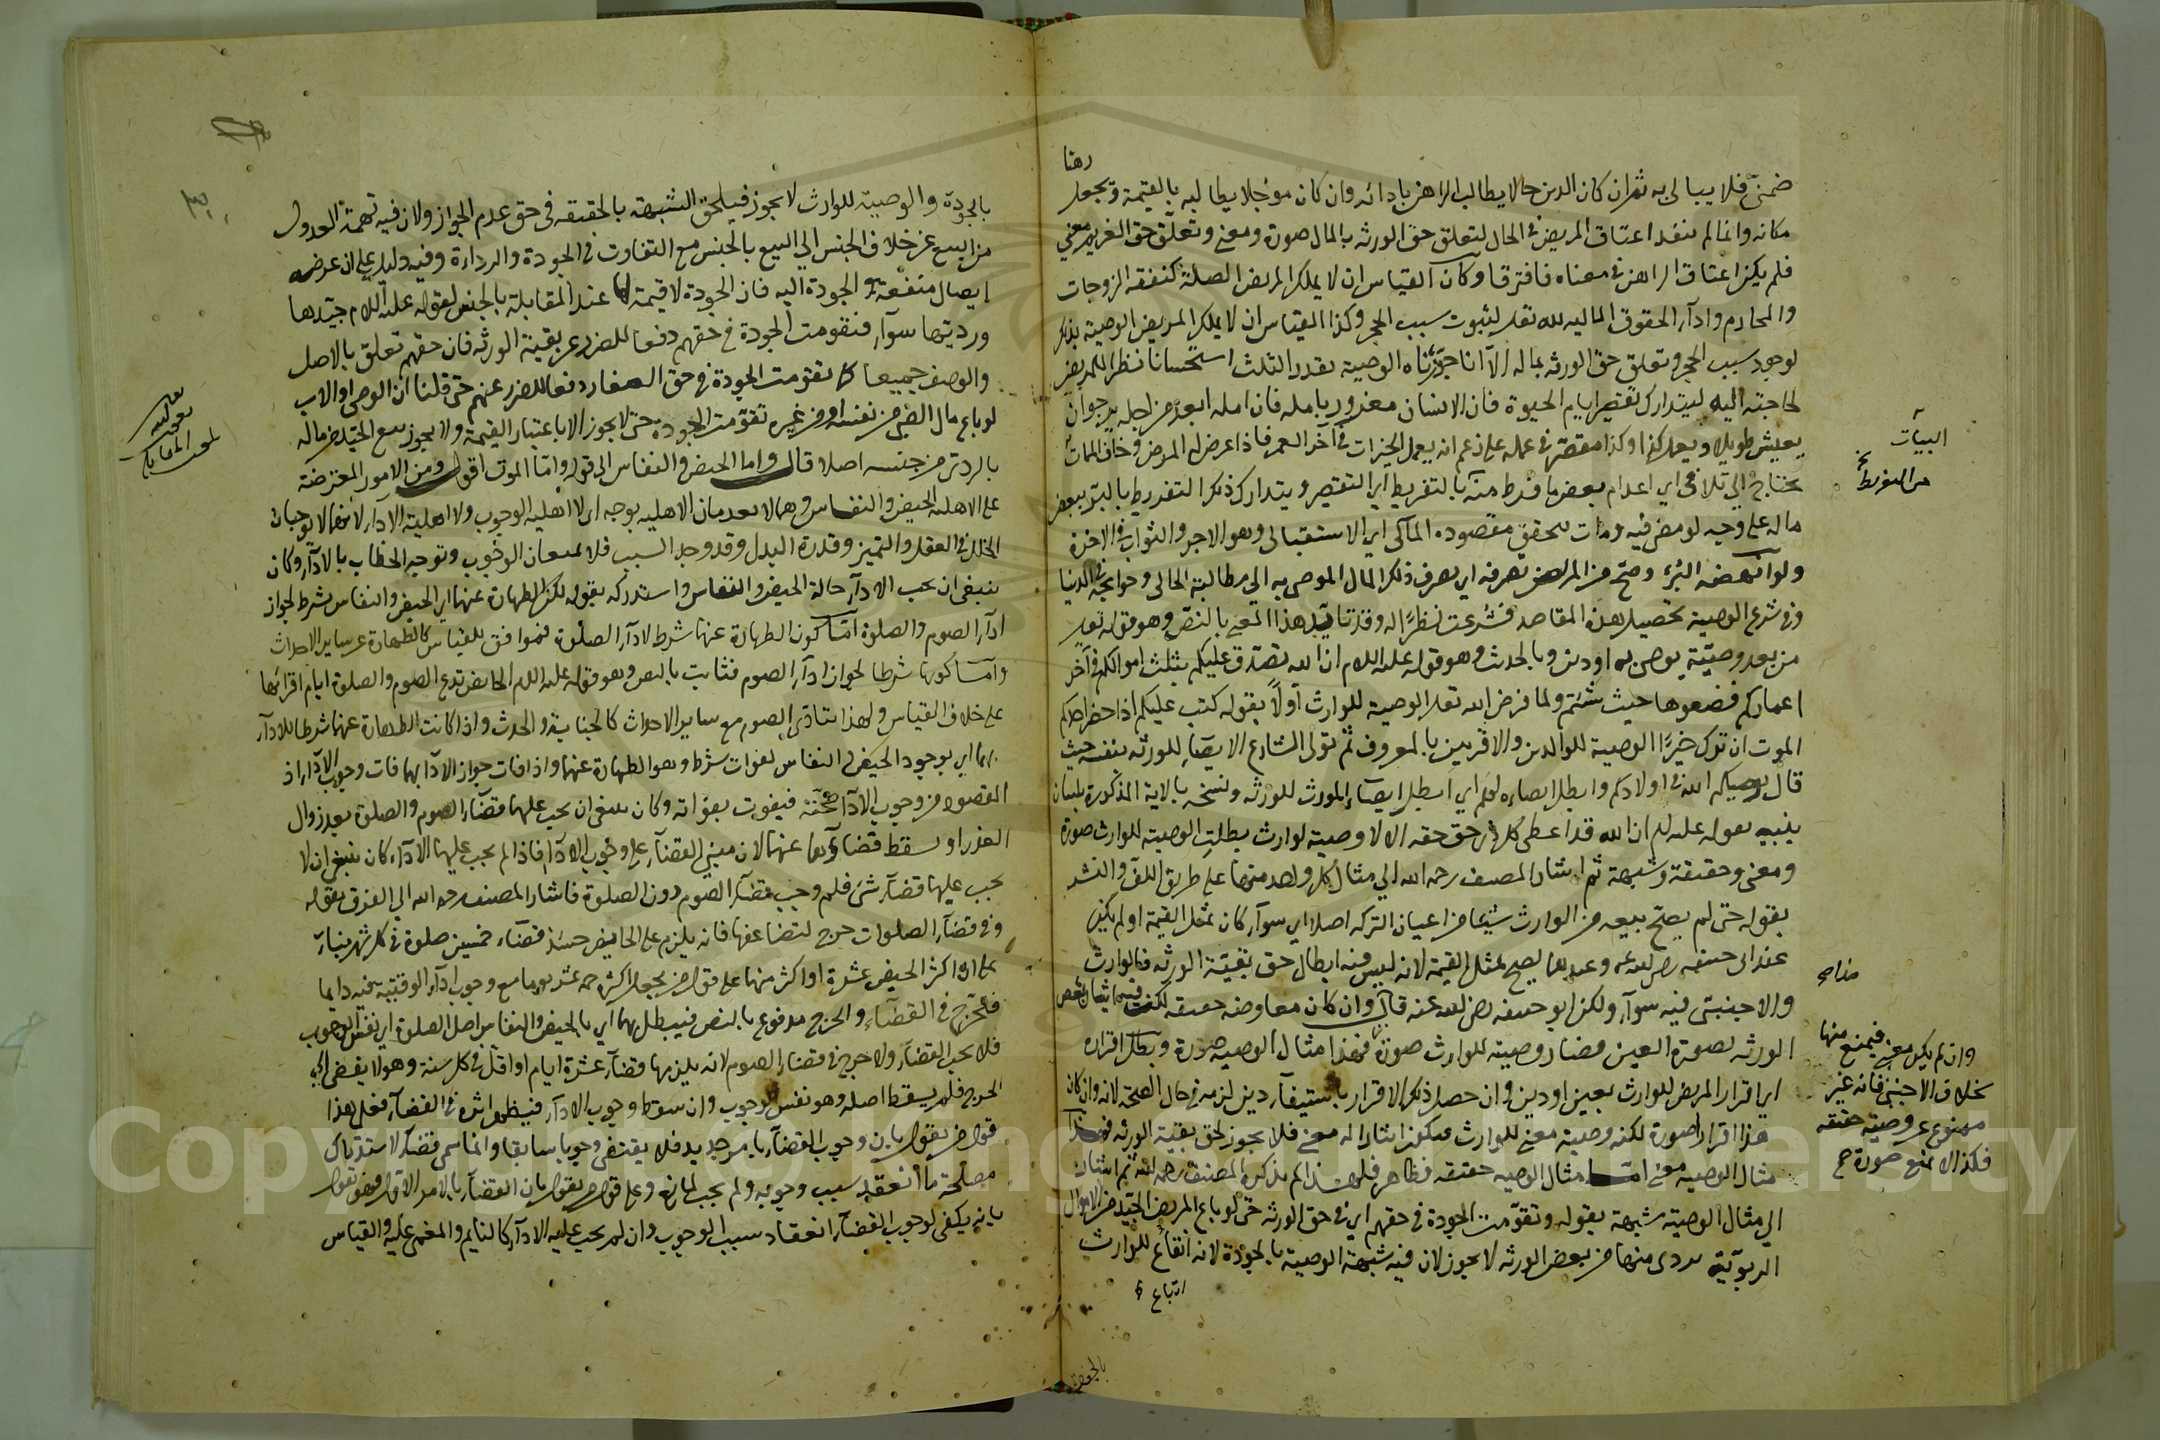 رهنا
ضمنىّ فلا يبالى به ثم ان كان الدين حالا يطالب الراهن بادائه وان كان مؤجلا يطالبه بالقيمة ويجعل
مكانه وانما لم ينفذ اعتاق المريض فى الحال لتعلق حق الورثه بالمال صورة ومعنى وتعلق حق الغريم معنى
فلم يكن اعتاق الراهن فى معناه فافترقا وكان القياس ان لا يملك المريض الصلة كنفقة الزوجات
والمحارم وادآء الحقوق الماليه لله تعلى لثبوت سبب الحجر وكذا القياس ان لا يملك المريض الوصية بذلك
لوجود سبب الحجر وتعلق حق الورثه بماله الّا انا جوّزناه الوصية بقدر الثلث استحسانا نظرا للمريض
لحاجته اليه ليتدارك تقصير ايام الحيوة فان الانسان مغرور بامله فان امله ابعد من اجله يرجو ان
يعيش طويلا ويعمل كذا وكذا مقصّر فى عمله على زعم انه يعمل الخيرات فى آخر العمر فاذا عرض له المرض وخاف الممات
يحتاج الى تلافى اى اعدام بعض ما فرط منه بالتفريط اى التقصير ويتدارك ذلك التفريط بالبر ببعض
ماله على وجه لو مضى فيه ومات يتحقق مقصوده المآلى اى الاستقبالى وهو الاجر والثواب فى الاخرة
ولو انهضه البُرء وصح من المرض يصرفه اى يصرف ذلك المال الموصى به الى مطالبه الحالى وحوايجه فى الدنيا
وفى شرع الوصية تحصيل هذه المقاصد فشرعت نظرًا له وقد تايّد هذا المعنى بالنصّ وهو قوله تعلى
من بعد وصيّة يوصى بها اودين وبالحديث وهو قوله عليه السلام ان الله تصدّق عليكم بثلث اموالكم فى آخر
اعماركم فضعوها حيث شئتم ولما فرض الله تعلى الوصية للوارث اوّلًا بقوله كتب عليكم اذا حضر احدكم
الموت ان ترك خيرًا الوصية للوالدين والاقربين بالمعروف ثم تولى الشارع الايصآء للورثه بنفسه حيث
قال يوصيكم الله فى اولادكم وابطل ايصاءه لهم اى ابطل ايصآء المورث للورثه ونسخه بالاية المذكورة بلسان
نبيه بقوله عليه السلام ان الله قد اعطى كل ذى حق حقه الا لا وصية لوارث بطلت الوصية للوارث صورة
ومعنى وحقيقة وشبهة ثم اشار المصنف رحمه الله الى مثال كل واحد منها على طريق اللف والنشر
بقوله حتى لم يصحّ بيعه من الوارث شيئا من اعيان التركه اصلا اى سوآء كان بمثل القيمة او لم يكن
عند ابى حنيفه رضى الله عنه وعندهما يصح بمثل القيمة لانه ليس فيه ابطال حق بقيّة الورثه فالوارث
والاجنبىّ فيه سوآء ولكن ابو حنيفه رضى الله عنه قال وان كان معاوضه حقيقه لكن فيه ايثار بعض
الورثه بصورة العين فصار وصية للوارث صورة فهذا مثال الوصية صورة وبطل اقراره
اى اقرار المريض للوارث بعين اودين وان حصل ذلك الاقرار باستيفآء دين لزمه فى حال الصحة لانه وان كان
هذا اقرارا صورة لكنه وصية معنى للوارث فيكون ايثارا له معنى فلا يجوز لحق بقية الورثه فهذا
مثال الوصيه معنى امّا مثال الوصيه حقيقه فظاهر فلهذا لم يذكره المصنف رحمه الله ثم اشار
الى مثال الوصية شبهة بقوله وتقوّمت الجودة فى حقهم اى فى حق الورثه حتى لو باع المريض الجيّد من الاموال
الربوّية بردى منها من بعض الورثه لا يجوز لان فيه شبهة الوصية بالجودة لانه انتفاع للوارث
بالجودة
البيات
من التفريط
وان لم يكن معنى فيمنع منها
بخلاف الاجنبى فانه غير
ممنوع عن وصية حقيقه
فكذا لا يمنع صورة صح
بالجودة والوصية للوارث لا يجوز فيلحق الشبهة بالحقيقه فى حق عدم الجواز ولان فيه تهمة العدول
من البيع عن خلاف الجنس الى البيع بالجنس مع التفاوت فى الجودة والرداءة وفيه دليل على ان غرضه
ايصال منفعة الجودة اليه فان الجودة لا قيمة لها عند المقابلة بالجنس لقوله عليه السلام جيّدها
ورديّها سوآء فتقومت الجودة فى حقهم دفعا للضرر عن بقية الورثه فان حقهم تعلق بالاصل
والوصف جميعا كما تقومت الجودة فى حق الصغار دفعا للضرر عنهم حتى قلنا ان الوصى او الاب
لو باع مال الصبى من نفسه او من غيره تقوّمت الجودة حتى لا يجوز الا باعتبار القيمة ولا يجوز بيع الجيّد من ماله
بالردىّ من جنسه اصلا قال واما الحيض والنفاس الى قوله وامّا الموت اقول ومن الامور المعترضة
على الاهلية الحيض والنفاس وهما لا يعدمان الاهليه بوجه اى لا اهلية الوجوب ولا اهلية الادآء لانهما لا يوجبان
الخلل فى العقل والتميز وقدرة البدل وقد وجد السبب فلا يمنعان الوجوب وتوجه الخطاب بالادآء وكان
ينبغى ان يجب الادآء حالة الحيض والنفاس واستدركه بقوله لكن الطهارة عنها اى الحيض والنفاس شرط لجواز
ادآء الصوم والصلوة امّا كون الطهارة عنها شرطا لادآء الصلوة فموافق للقياس كالطهارة عن ساير الاحداث
وامّا كونها شرطا لجواز ادآء الصوم فثابت بالنص وهو قوله عليه السلام الحايض تدع الصوم والصلوة ايام اقرائها
على خلاف القياس ولهذا يتادّى الصوم مع ساير الاحداث كالجنابة والحدث واذا كانت الطهارة عنها شرطا للادآء
بهما اى بوجود الحيض والنفاس لفوات شرط وهو الطهارة عنها واذا فات جواز الادآء بهما فات وجوب الادآء اذ
المقصود من وجوب الادآء صحّته فيفوت بفواته وكان ينبغى ان يجب عليها قضآء الصوم والصلوة بعد زوال
العذر او يسقط قضاؤهما عنها لان مبنى القضآء على وجوب الادآء فاذا لم يجب عليها الادآء كان ينبغى ان لا
يجب عليها قضآء شئ فلم وجب قضآء الصوم دون الصلوة فاشار المصنف رحمه الله الى الفرق بقوله
وفى قضآء الصلوات حرج لتضاعفها فانه يلزم على الحايض حينئذ قضآء خمسين صلوة فى كل شهر بنآء
على ان اكثر الحيض عشرة او اكثر منها على قول من يجعل اكثره خمسة عشر يوما مع وجوب ادآء الوقتية دايما
فتحرّج فى القضآء والحرج مدفوع بالنص فيبطل بهما اى بالحيض والنفاس اصل الصلوة اى نفس الوجوب
فلا يجب القضآء ولا حرج فى قضآء الصوم لانه يلزمها قضآء عشرة ايام او اقل فى كل سنة وهو لا يفضى الى
الحرج فلم يسقط اصله وهو نفس الوجوب وان سقط وجوب الادآء فيظهر اثره فى القضآء فعلى هذا
قول من يقول بان وجوب القضآء بامر جديد فلا يقتضى وجوبا سابقا وانما سمى قضآء لاستدراك
مصلحة ما انعقد سبب وجوبه ولم يجب لمانع وعلى قول من يقول بان القضآء بالامر الاول فهو يقول
بانه يكفى لوجوب القضآء انعقاد سبب الوجوب وان لم يجب عليه الادآء كالنايم والمغمى عليه والقياس